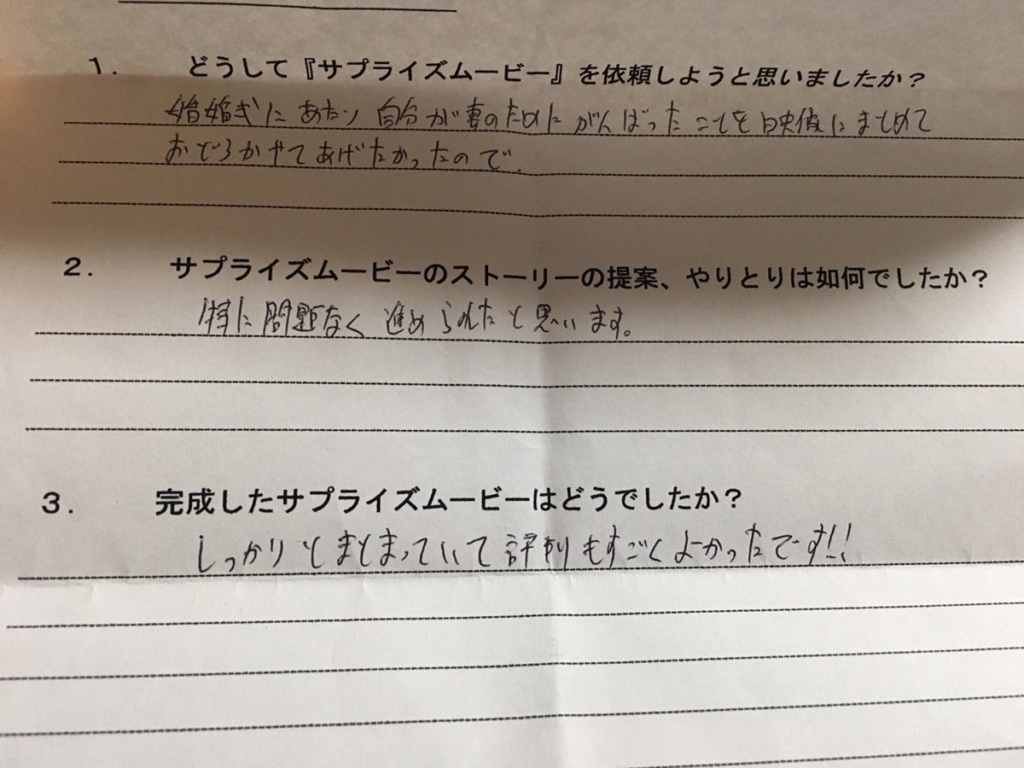 1. どうして『サプライズムービー』を依頼しようと思いましたか?
婚式にあたり 自分が妻のためにがんばったことを映像にまとめて
おどろかせてあげたかったので.
2. サプライズムービーのストーリーの提案、やりとりは如何でしたか?
特に問題なく進められたと思います。
3. 完成したサプライズムービーはどうでしたか?
しっかりとまとまっていて評判もすごくよかったです!!